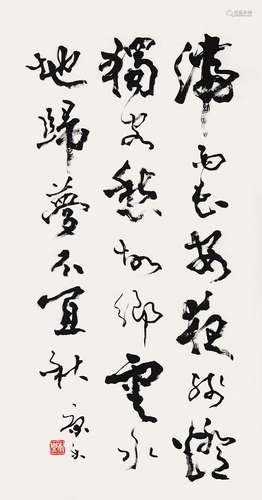 滯雨長安夜殘燈
獨客愁故鄉雲水
地歸夢不宜秋